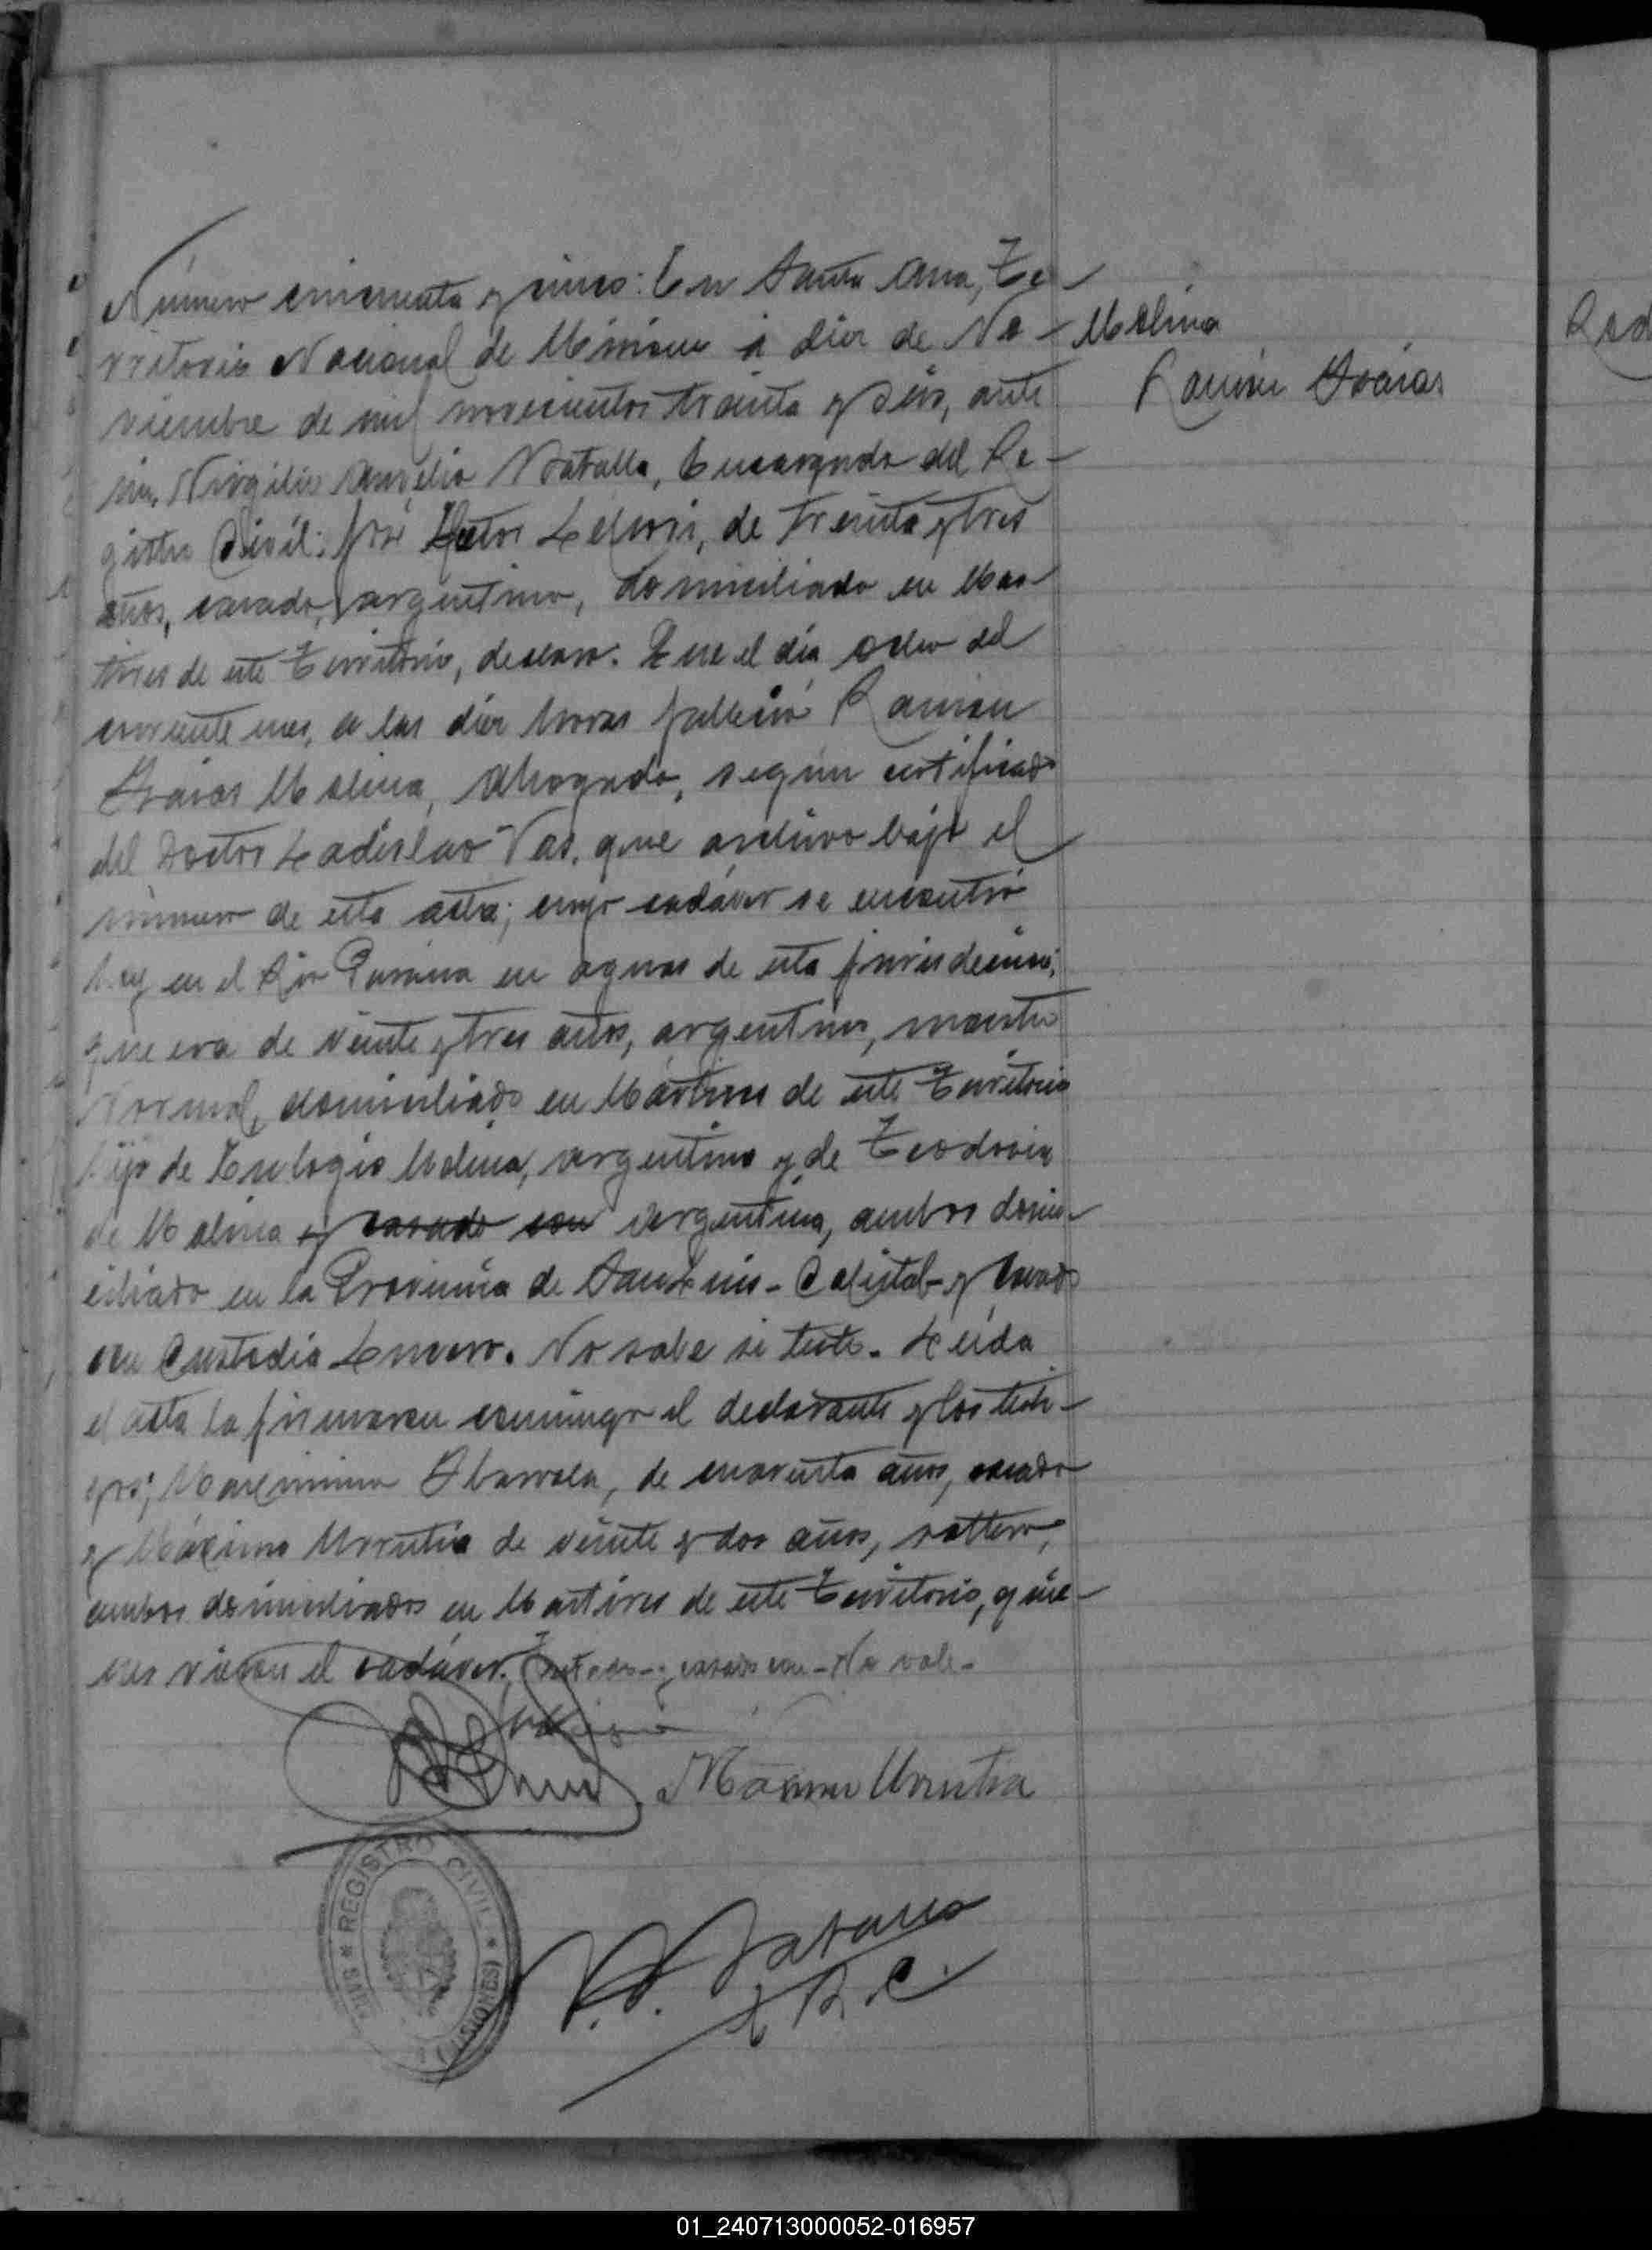 Número cincuenta y cinco: En Santa Ana, Te-
rritorio Nacional de Misiones a diez de No-
viembre de mil novecientos treinta y seis, ante
mi, Virgilio Aurelio Batalla, Encargado del Re-
gistro Civil: José Hector Lel, de treinta y tres
años, casado, argentino, domiciliado en Mar-
tires de este Territorio, declaro: Que el día ocho del
corriente mes, a las diez horas falleció Ramón
Isaias Molina, Ahogado, según certificado
del Doctor Ladislao Vas, que archivo bajo el
número de esta acta; cuyo cadáver se encontró
hoy en el Rio Parana en aguas de esta jurisdición;
que era de veinte y tres años, argentino, maestro
Normal, domiciliado en Mártires de este Territorio
hijo de Eulogio Molina, argentino y de Teodosia
de Molina y casado con argentina, ambos domi-
ciliado en la Provincia de San Luis - Capital - y casado
con Custodia Lucero. No sabe si testó. Leída
el acta la firmaron conmigo el declarante y los testi-
gos; Maximino, de cuarenta años, casado
y Máximo Urrutia de veinte y dos años, soltero,
ambos domiciliados en Martires de este Territorio, quie-
nes vieron el cadáver. Testado - y casado con - No vale -
Máximo Urrutia
V. A. Batalla
E. R. C.
REGISTRO CIVIL * (MISIONES) * SANTA
Molina
Ramón Isaias
Rod
01_240713000052-016957